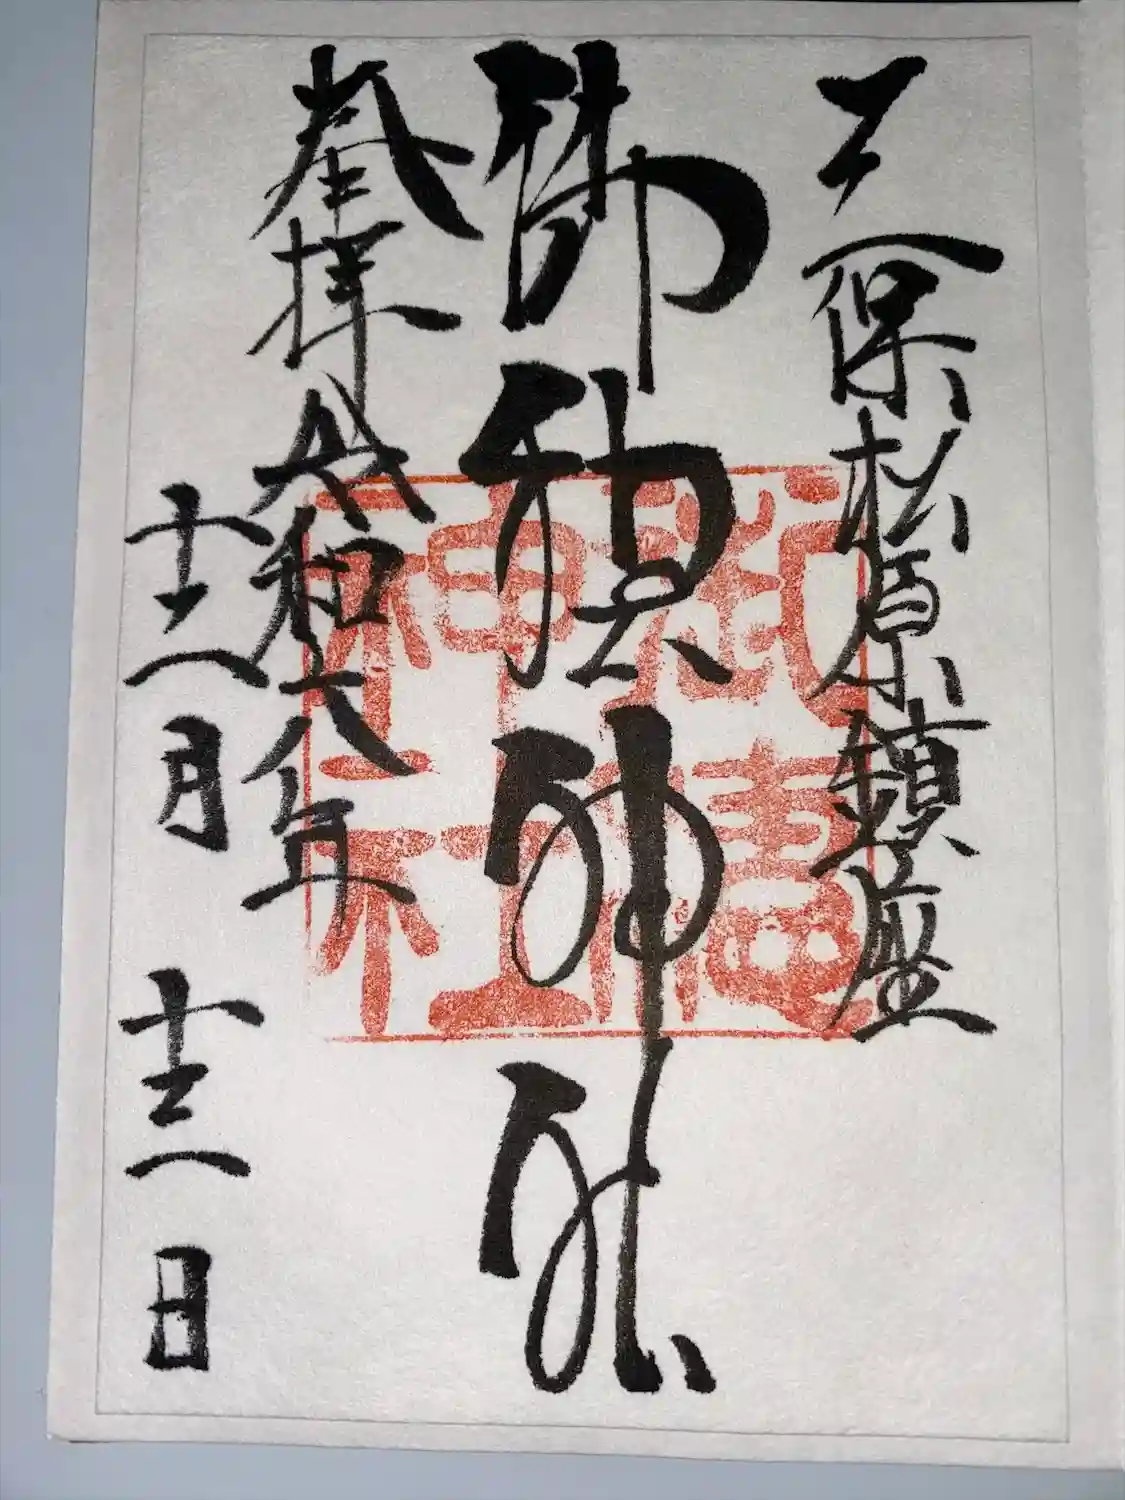 三保松原鎮座
御穂神社
奉拝 令和六年
十二月 十三日
御穂
神社